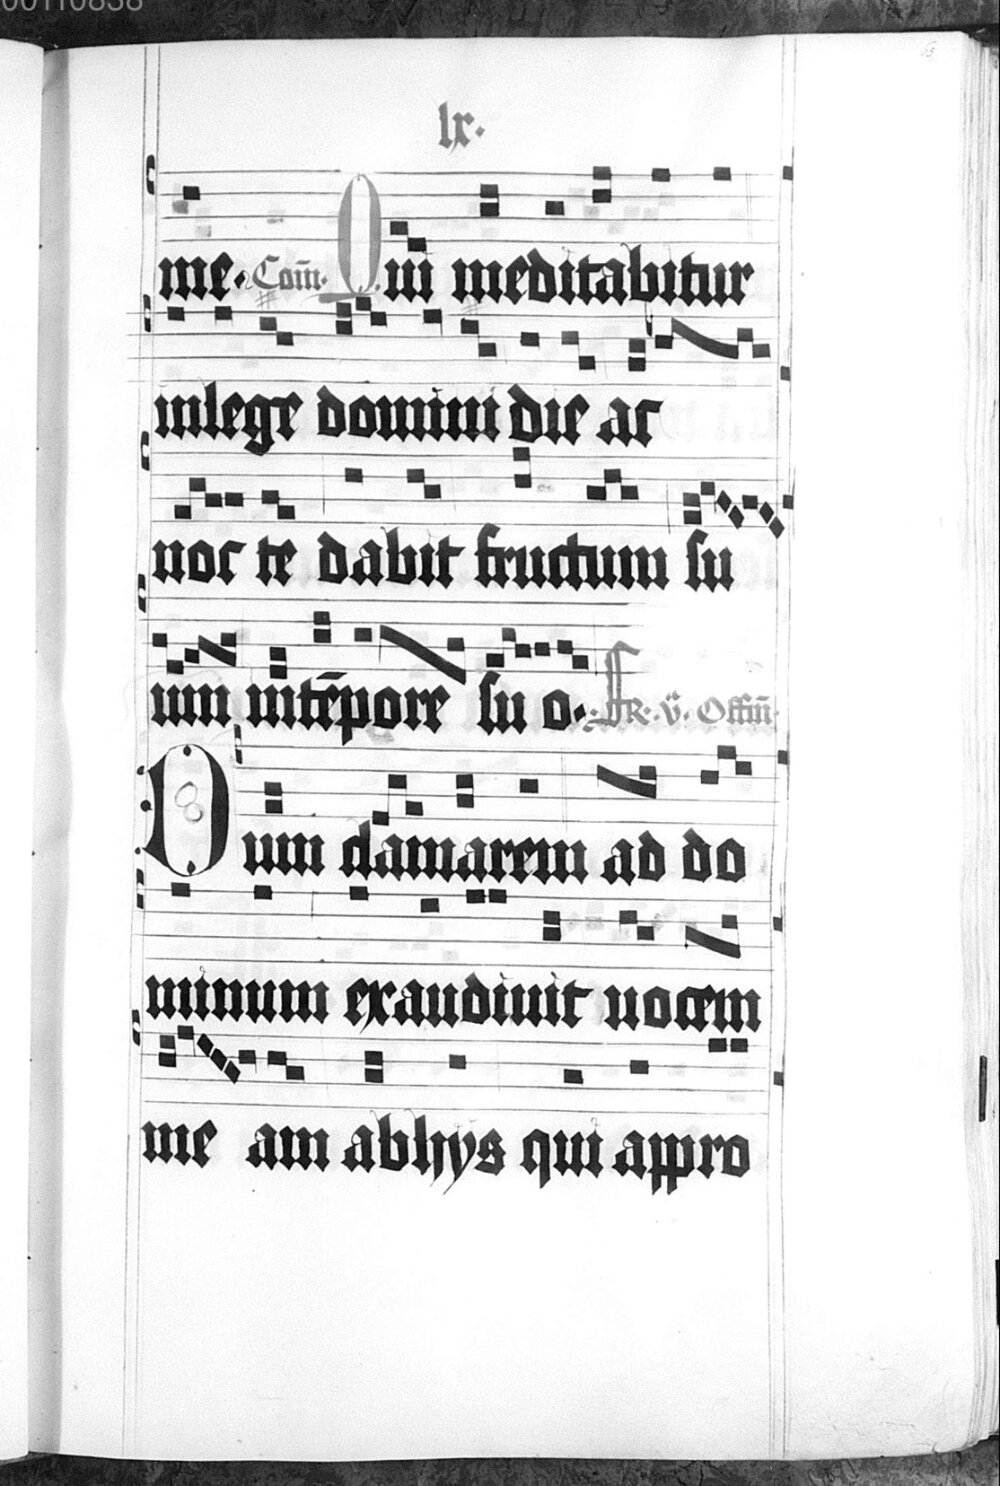 00110838
65
lx.
me. Com̄. Qui meditabitur
inlege domini die ac
noc te dabit fructum su
um intēpore su o. fr. v̈. Offin̄
Dum clamarem ad do
minum exaudiuit uocem
me am abhÿs qui appro